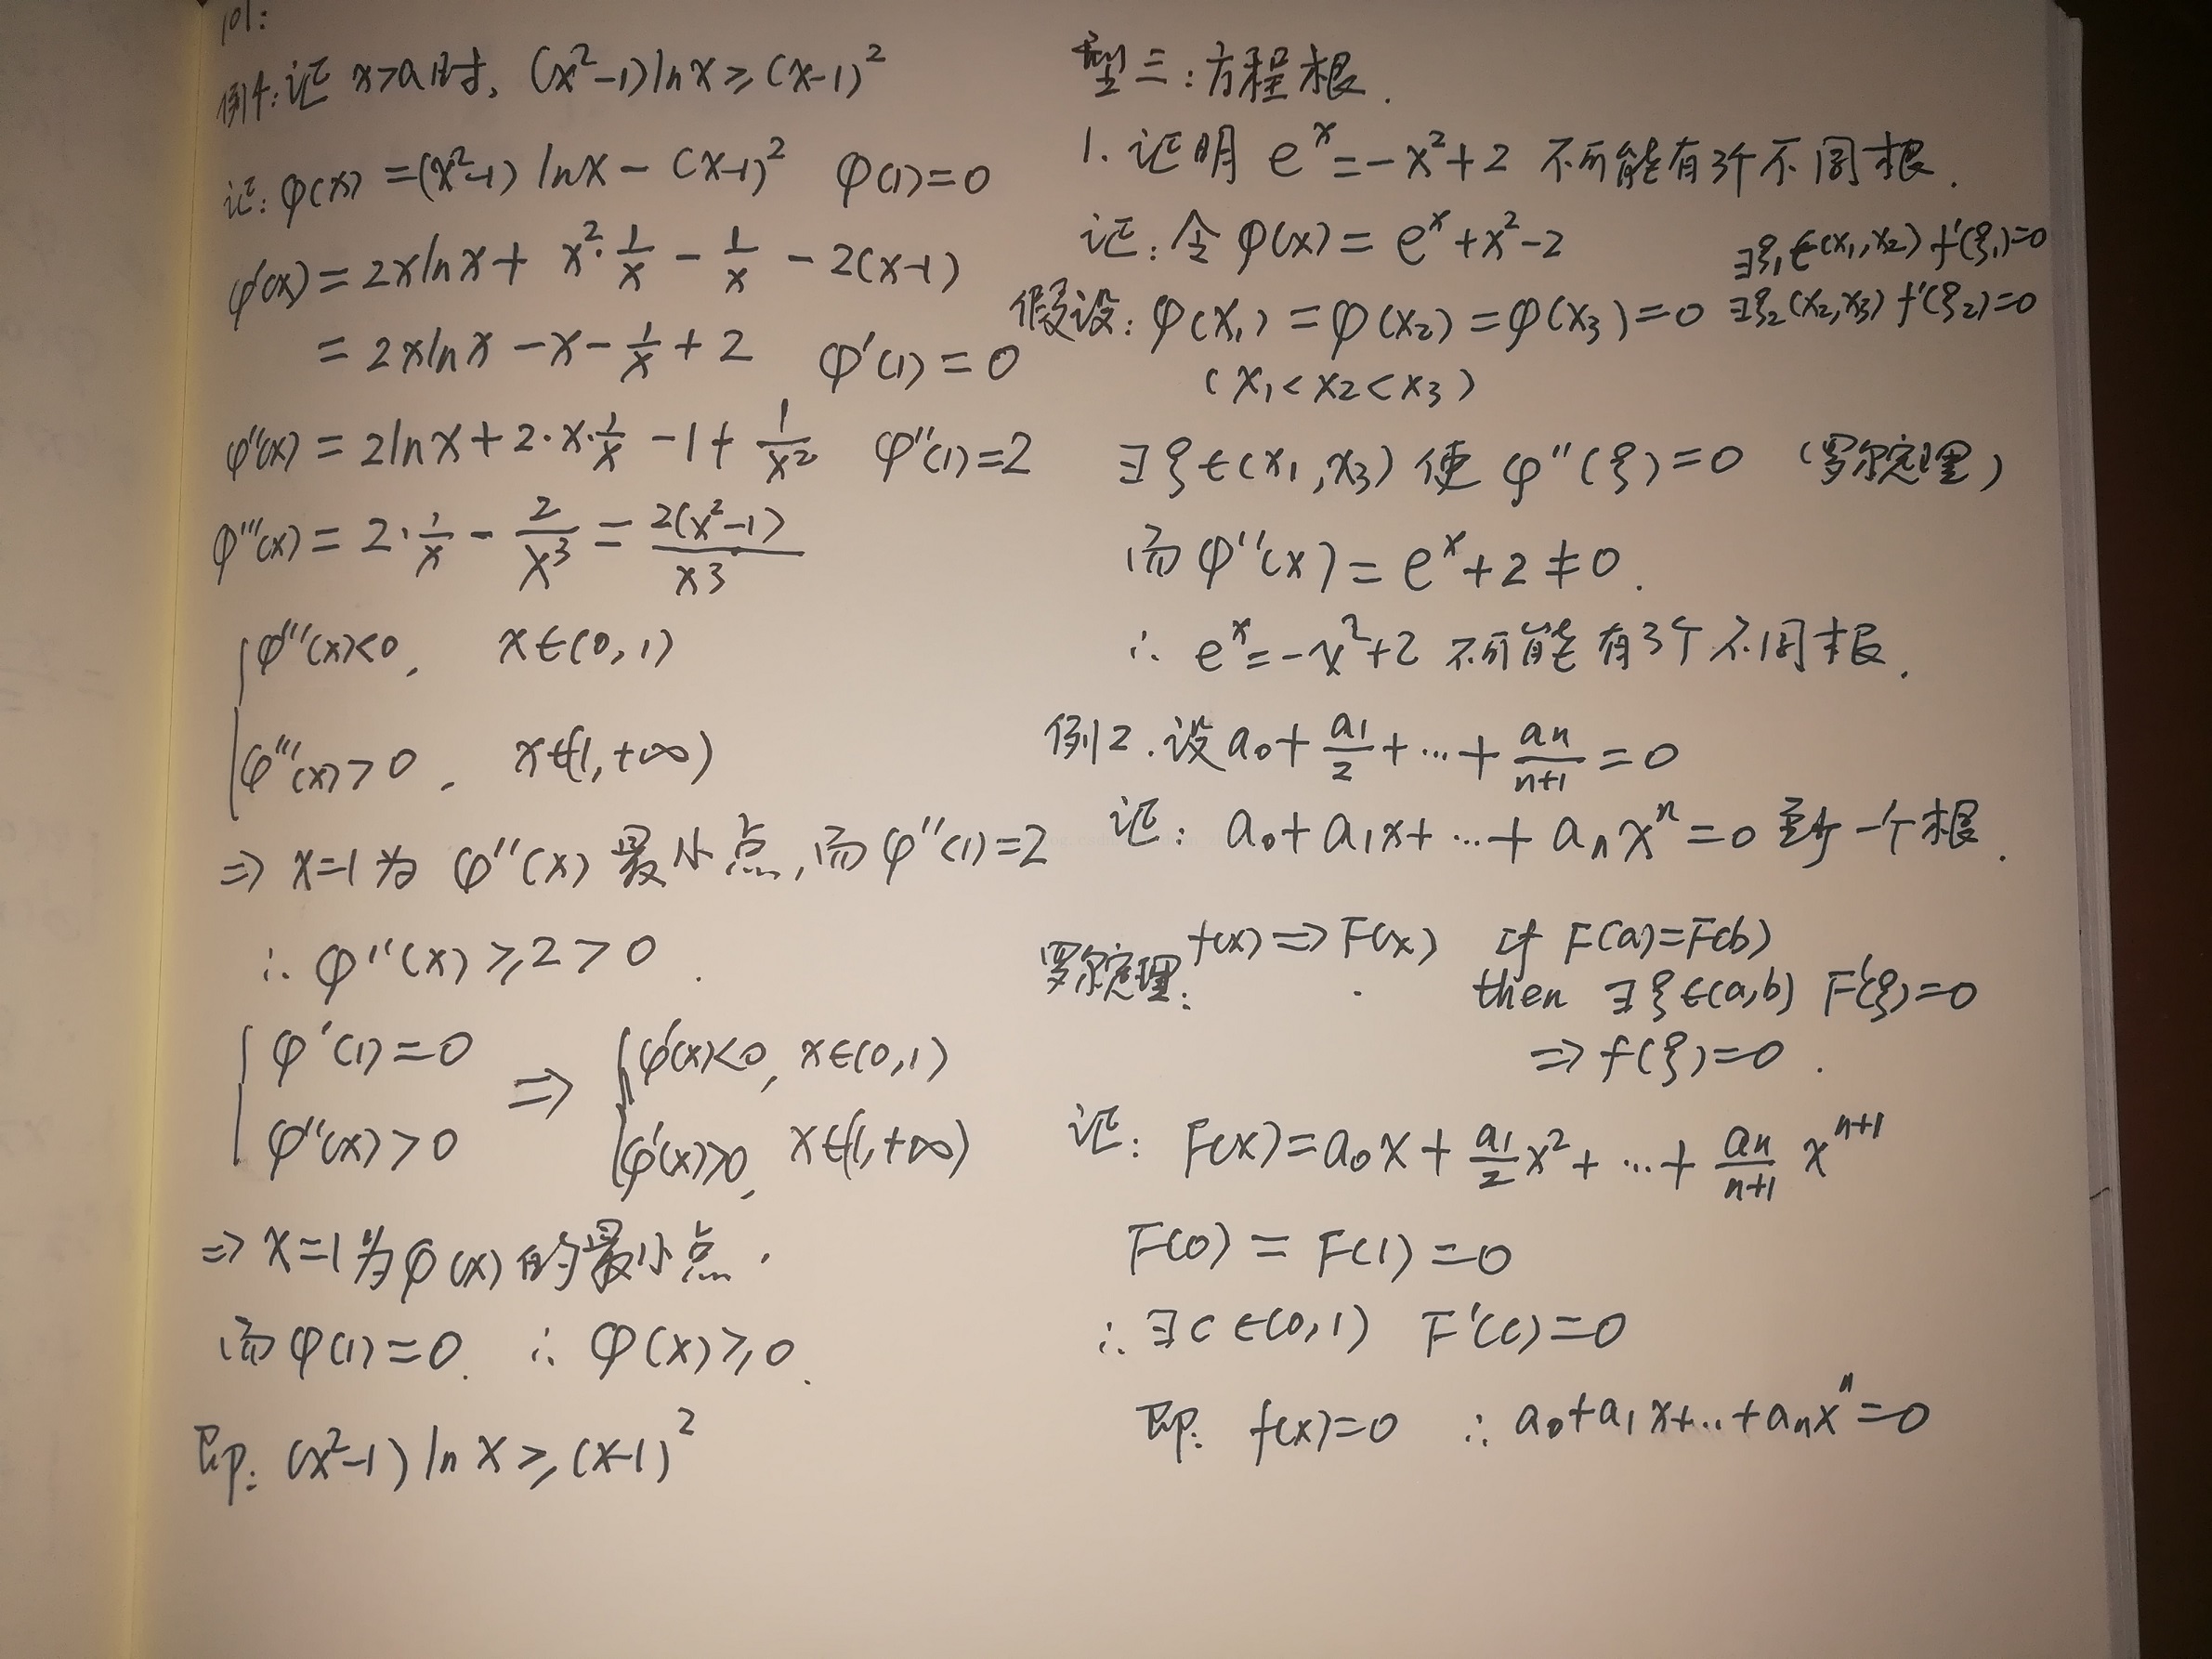 101:
例4:证 x>a时, (x²-1)lnx≥(x-1)²
证: φ(x)=(x²-1)lnx-(x-1)² φ(1)=0
φ'(x)=2xlnx+x²·1/x-1/x-2(x-1)
=2xlnx-x-1/x+2 φ'(1)=0
φ''(x)=2lnx+2·x·1/x-1+1/x² φ''(1)=2
φ'''(x)=2·1/x-2/x³=2(x²-1)/x3
φ'''(x)<0, x∈(0,1)
φ'''(x)>0, x∈(1,+∞)
⇒ x=1为φ''(x)最小点,而φ''(1)=2
∴φ''(x)≥2>0.
{φ'(1)=0 ⇒ {φ'(x)<0, x∈(0,1)
φ''(x)>0 φ'(x)>0, x∈(1,+∞)
⇒x=1为φ(x)的最小点.
而φ(1)=0. ∴φ(x)≥0.
即: (x²-1)lnx≥(x-1)²
型三:方程根.
1. 证明 eˣ=-x²+2 不可能有3个不同根.
证:令φ(x)=eˣ+x²-2
∃ξ₁∈(x₁,x₂) f'(ξ₁)=0
假设:φ(x₁)=φ(x₂)=φ(x₃)=0 ∃ξ₂(x₂,x₃) f'(ξ₂)=0
(x₁<x₂<x₃)
∃ξ∈(x₁,x₃)使φ''(ξ)=0 (罗尔定理)
而φ''(x)=eˣ+2≠0.
∴eˣ=-x²+2 不可能有3个不同根.
例2.设a₀+a₁/2+…+aₙ/n+1=0
证: a₀+a₁x+…+aₙxⁿ=0 至少一个根.
罗尔定理: f(x)⇒F(x) if F(a)=F(b)
then ∃ξ∈(a,b) F'(ξ)=0
⇒f(ξ)=0.
证: F(x)=a₀x+a₁/2x²+…+aₙ/n+1 xⁿ⁺¹
F(0)=F(1)=0
∴∃c∈(0,1) F'(c)=0
即: f(x)=0 ∴a₀+a₁x+…+aₙxⁿ=0